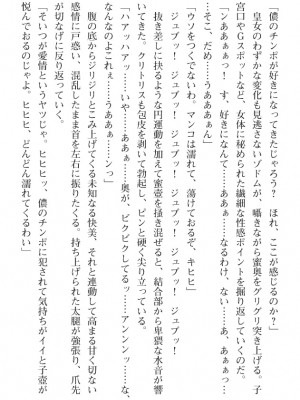 「儂のチンポが好きになってきたじゃろう？　ほれ、ここが感じるのか？」
皇女のわずかな変化も見逃さないゾドムが、囁きながら蜜奥をグリグリ突き上げる。子
宮口やGスポットなど、女体に秘められた繊細な性感ポイントを掘り返していくのだ。
「ンああぁぁっ！　す、好きになんて……あぁ……なるわけ、ない……あ、あぁぁっ……
そこ、だめ……うあああぁん」
ジュプッ！　ジュプッ！　ジュプッ！　ジュプッ！
「ウソをつくでない。マンコは濡れて、蕩けておるぞ、キヒヒ」
抜き差しに抉るような円運動を加えて蜜壺を掻き混ぜると、結合部から卑猥な水音が響
いてきた。クリトリスも包皮を剥いて勃起し、ピンと硬く尖り立っている。
「ハアッハアッ……いや……ああぁ……奥が、ビクビクしてるッ……アンンンッ……
なんなのよこれぇ……うああぁ……んっ」
腹の底からジリジリとこみ上げてくる未知なる快美、それと連動して高まる甘く切ない
感情に戸惑い、混乱したまま首を左右に振りたくる。持ち上げられた太腿が強張り、爪先
が切なげに反り返っていく。
「そいつが愛情というヤツじゃ。ヒヒヒッ、儂のチンポに犯されて気持ちがイイと子壺が
悦んでおるのじゃよ、ヒヒヒ、どんどん濡れてくるわい」